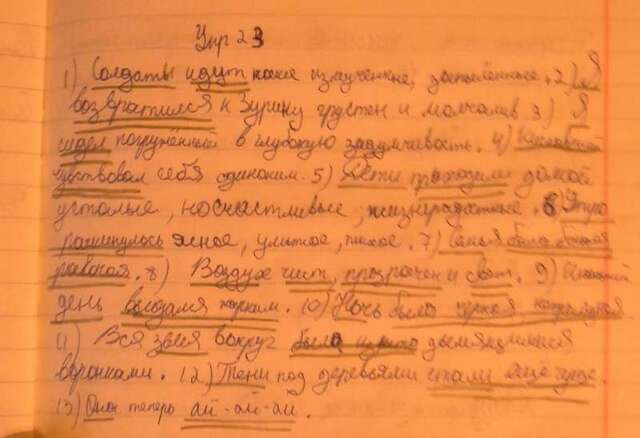 Упр 23
1) Солдаты идут какие измученные, запылённые. 2) Я
возвратился к Зурину грустен и молчалив 3) Я
сидел погружённый в глубокую задумчивость. 4)
чувствовал себя одиноким. 5) Дети приходили домой
усталые, но счастливые, жизнерадостные. 6) Утро
раскинулось ясное, умытое, тихое. 7) Семья была
8) Воздух чист, прозрачен и свеж. 9)
день выдался жарким. 10) Ночь была
11) Вся земля вокруг была изрыта дымящимися
воронками. 12) Тени под деревьями стали ещё гуще.
13) Она теперь ай-ай-ай.